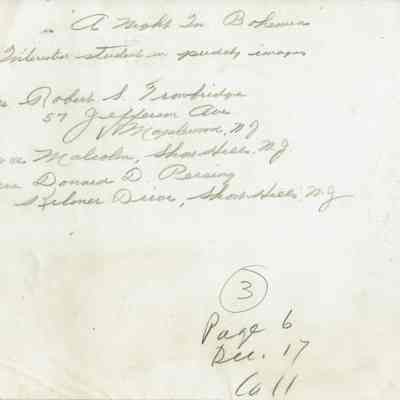 "A Night In Bohemia"
student in
Robert S. Trowbridge
57 Jefferson Ave
Maplewood, NJ
Malcolm, Short Hills, NJ
Donald D. Persing
Drive, Short Hills NJ
3
Page 6
Dec. 17
Call